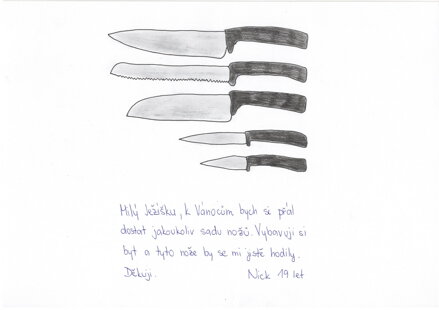 Milý Ježíšku, k Vánocům bych si přál
dostat jakoukoliv sadu nožů. Vybavuji si
byt a tyto nože by se mi jistě hodily.
Děkuji.
Nick 19 let